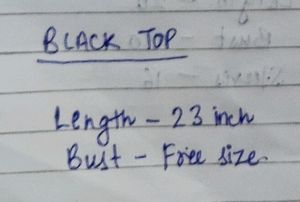 BLACK TOP
Length - 23 inch
Bust - Free size